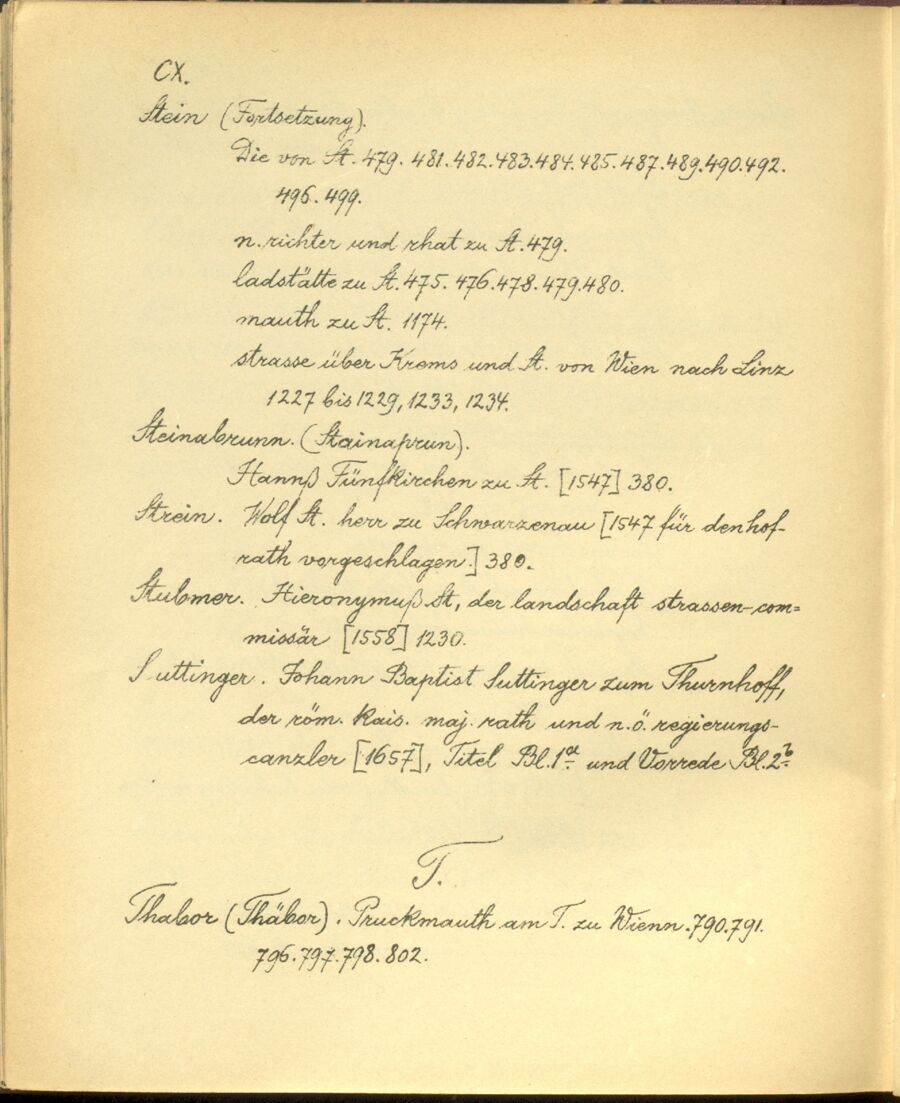 CX.
Stein (Fortsetzung).
Die von St. 479. 481. 482. 483. 484. 485. 487. 489. 490. 492.
496. 499.
n. richter und rhat zu St. 479.
ladstätte zu St. 475. 476. 478. 479. 480.
mauth zu St. 1174.
strasse über Krems und St. von Wien nach Linz
1227 bis 1229, 1233, 1234.
Steinabrunn. (Stainaprun).
Hannß Fünfkirchen zu St. [1547] 380.
Strein. Wolf St. herr zu Schwarzenau [1547 für den hof-
rath vorgeschlagen.] 380.
Stubmer. Hieronymuß St, der landschaft strassen-com=
missär [1558] 1230.
Suttinger. Johann Baptist Suttinger zum Thurnhoff,
der röm. kais. maj. rath und n.ö. regierungs-
canzler [1657], Titel Bl. 1a und Vorrede Bl. 2b
T.
Thabor (Thäbor). Pruckmauth am T. zu Wienn. 790. 791.
796. 797. 798. 802.